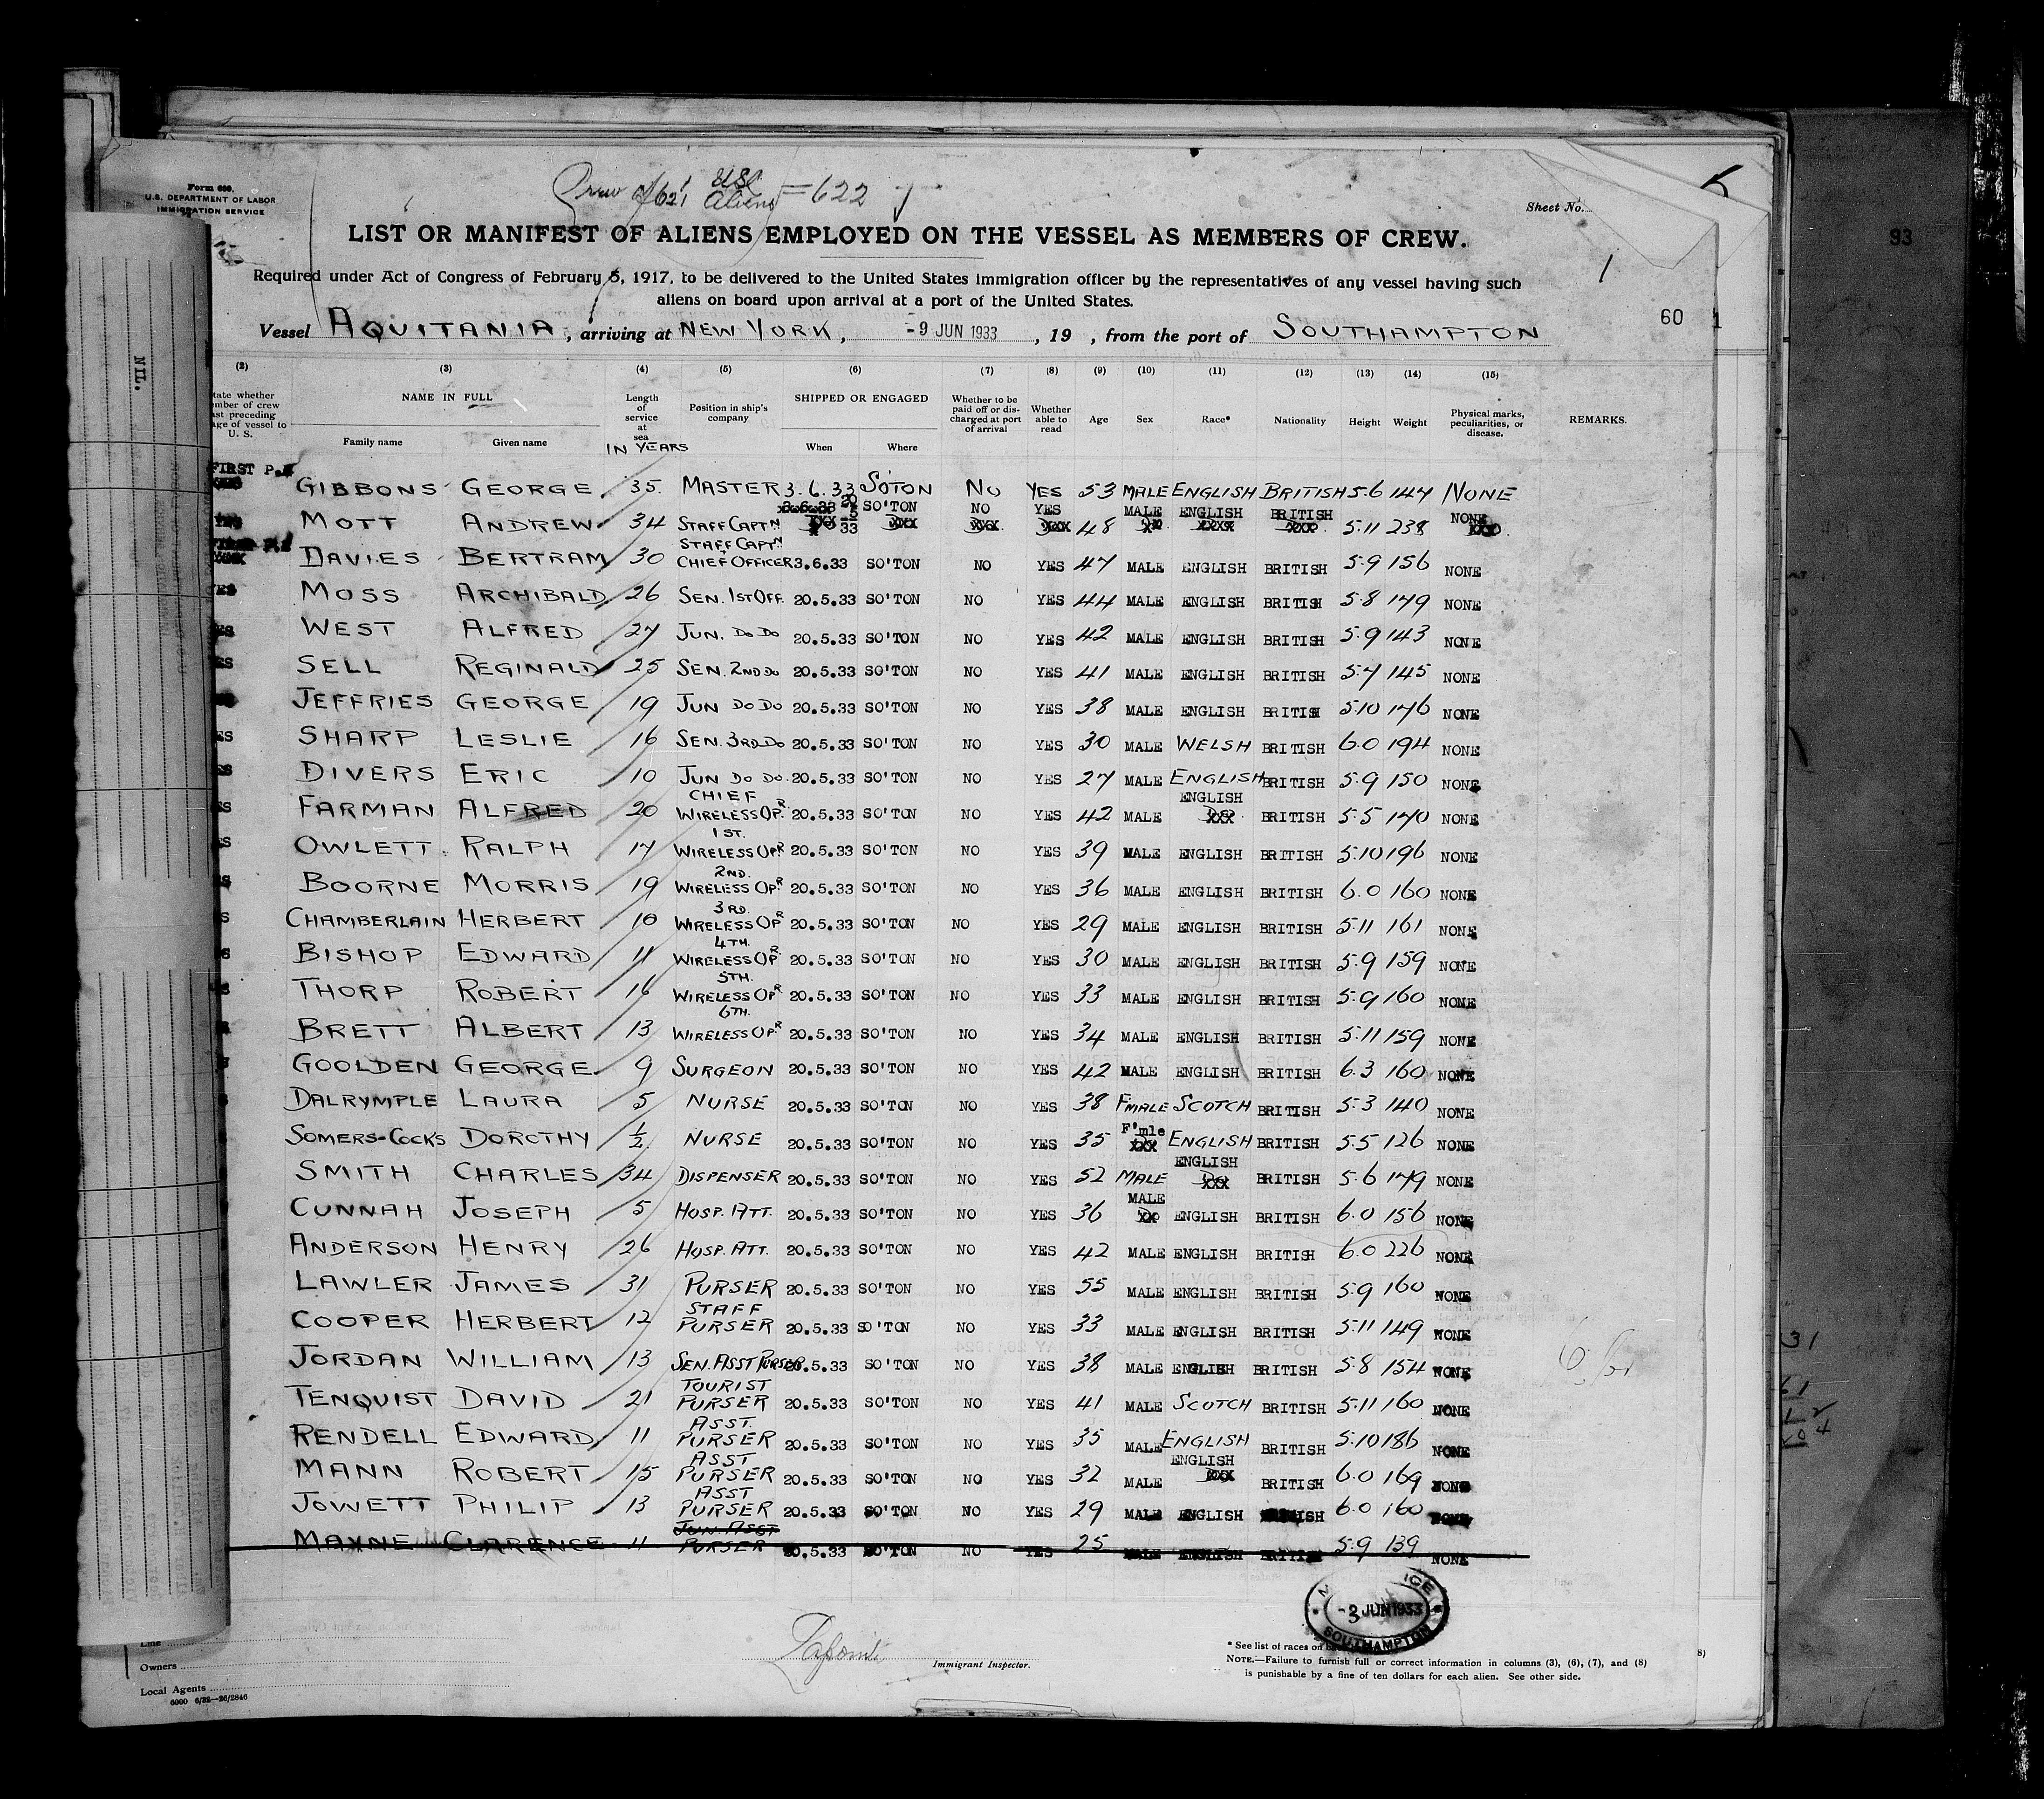 Form 680.
U.S. DEPARTMENT OF LABOR
IMMIGRATION SERVICE
Crew of 621 Aliens = 622
Sheet No.
LIST OR MANIFEST OF ALIENS EMPLOYED ON THE VESSEL AS MEMBERS OF CREW.
93
1
Required under Act of Congress of February 5, 1917, to be delivered to the United States immigration officer by the representatives of any vessel having such
aliens on board upon arrival at a port of the United States.
60
Vessel AQUITANIA, arriving at NEW YORK, -9 JUN 1933, 19 , from the port of SOUTHAMPTON
NIL.
(2) (3) (4) (5) (6) (7) (8) (9) (10) (11) (12) (13) (14) (15)
tate whether
mber of crew
ast preceding
age of vessel to
U. S.
NAME IN FULL
Family name Given name
Length
of
service
at
sea
IN YEARS
Position in ship's
company
SHIPPED OR ENGAGED
When Where
Whether to be
paid off or dis-
charged at port
of arrival
Whether
able to
read
Age Sex Race* Nationality Height Weight
Physical marks,
peculiarities, or
disease.
REMARKS.
FIRST
GIBBONS GEORGE 35. MASTER 3.6.33 SO'TON NO YES 53 MALE ENGLISH BRITISH 5.6 147 NONE
MOTT ANDREW 34 STAFF CAPTN 20 5 33 SO'TON NO YES 48 MALE ENGLISH BRITISH 5.11 238 NONE
DAVIES BERTRAM 30 STAFF CAPTN CHIEF OFFICER 3.6.33 SO'TON NO YES 47 MALE ENGLISH BRITISH 5.9 156 NONE
MOSS ARCHIBALD 26 SEN. 1ST OFF. 20.5.33 SO'TON NO YES 44 MALE ENGLISH BRITISH 5.8 179 NONE
WEST ALFRED 27 JUN. DO DO 20.5.33 SO'TON NO YES 42 MALE ENGLISH BRITISH 5.9 143 NONE
SELL REGINALD 25 SEN. 2ND DO 20.5.33 SO'TON NO YES 41 MALE ENGLISH BRITISH 5.7 145 NONE
JEFFRIES GEORGE 19 JUN DO DO 20.5.33 SO'TON NO YES 38 MALE ENGLISH BRITISH 5.10 176 NONE
SHARP LESLIE 16 SEN. 3RD. DO 20.5.33 SO'TON NO YES 30 MALE WELSH BRITISH 6.0 194 NONE
DIVERS ERIC 10 JUN DO DO. 20.5.33 SO'TON NO YES 27 MALE ENGLISH BRITISH 5.9 150 NONE
FARMAN ALFRED 20 CHIEF WIRELESS OPR. 20.5.33 SO'TON NO YES 42 MALE ENGLISH BRITISH 5.5 170 NONE
OWLETT RALPH 17 1ST. WIRELESS OPR 20.5.33 SO'TON NO YES 39 MALE ENGLISH BRITISH 5.10 196 NONE
BOORNE MORRIS 19 2ND. WIRELESS OPR 20.5.33 SO'TON NO YES 36 MALE ENGLISH BRITISH 6.0 160 NONE
CHAMBERLAIN HERBERT 10 3RD. WIRELESS OPR 20.5.33 SO'TON NO YES 29 MALE ENGLISH BRITISH 5.11 161 NONE
BISHOP EDWARD 11 4TH. WIRELESS OPR 20.5.33 SO'TON NO YES 30 MALE ENGLISH BRITISH 5.9 159 NONE
THORP ROBERT 16 5TH. WIRELESS OPR 20.5.33 SO'TON NO YES 33 MALE ENGLISH BRITISH 5.9 160 NONE
BRETT ALBERT 13 6TH. WIRELESS OPR 20.5.33 SO'TON NO YES 34 MALE ENGLISH BRITISH 5.11 159 NONE
GOOLDEN GEORGE 9 SURGEON 20.5.33 SO'TON NO YES 42 MALE ENGLISH BRITISH 6.3 160 NONE
DALRYMPLE LAURA 5 NURSE 20.5.33 SO'TON NO YES 38 FMALE SCOTCH BRITISH 5.3 140 NONE
SOMERS-COCKS DOROTHY 1/2 NURSE 20.5.33 SO'TON NO YES 35 F'mle ENGLISH BRITISH 5.5 126 NONE
SMITH CHARLES 34 DISPENSER 20.5.33 SO'TON NO YES 52 MALE ENGLISH BRITISH 5.6 179 NONE
CUNNAH JOSEPH 5 HOSP. ATT. 20.5.33 SO'TON NO YES 36 MALE ENGLISH BRITISH 6.0 156 NONE
ANDERSON HENRY 26 HOSP. ATT. 20.5.33 SO'TON NO YES 42 MALE ENGLISH BRITISH 6.0 226 NONE
LAWLER JAMES 31 PURSER 20.5.33 SO'TON NO YES 55 MALE ENGLISH BRITISH 5.9 160 NONE
COOPER HERBERT 12 STAFF PURSER 20.5.33 SO'TON NO YES 33 MALE ENGLISH BRITISH 5.11 149 NONE
JORDAN WILLIAM 13 SEN. ASST PURSER 20.5.33 SO'TON NO YES 38 MALE ENGLISH BRITISH 5.8 154 NONE
TENQUIST DAVID 21 TOURIST PURSER 20.5.33 SO'TON NO YES 41 MALE SCOTCH BRITISH 5.11 160 NONE
RENDELL EDWARD 11 ASST. PURSER 20.5.33 SO'TON NO YES 35 MALE ENGLISH BRITISH 5.10 186 NONE
MANN ROBERT 15 ASST PURSER 20.5.33 SO'TON NO YES 32 MALE ENGLISH BRITISH 6.0 169 NONE
JOWETT PHILIP 13 ASST PURSER 20.5.33 SO'TON NO YES 29 MALE ENGLISH BRITISH 6.0 160 NONE
MAYNE CLARENCE 11 JUN. ASST PURSER 20.5.33 SO'TON NO YES 25 MALE ENGLISH BRITISH 5.9 139 NONE
-3 JUN 1933
SOUTHAMPTON
Line
Owners
Local Agents
6000 6/32—26/2846
Immigrant Inspector.
* See list of races on
NOTE.—Failure to furnish full or correct information in columns (3), (6), (7), and (8)
is punishable by a fine of ten dollars for each alien. See other side.
8)
31